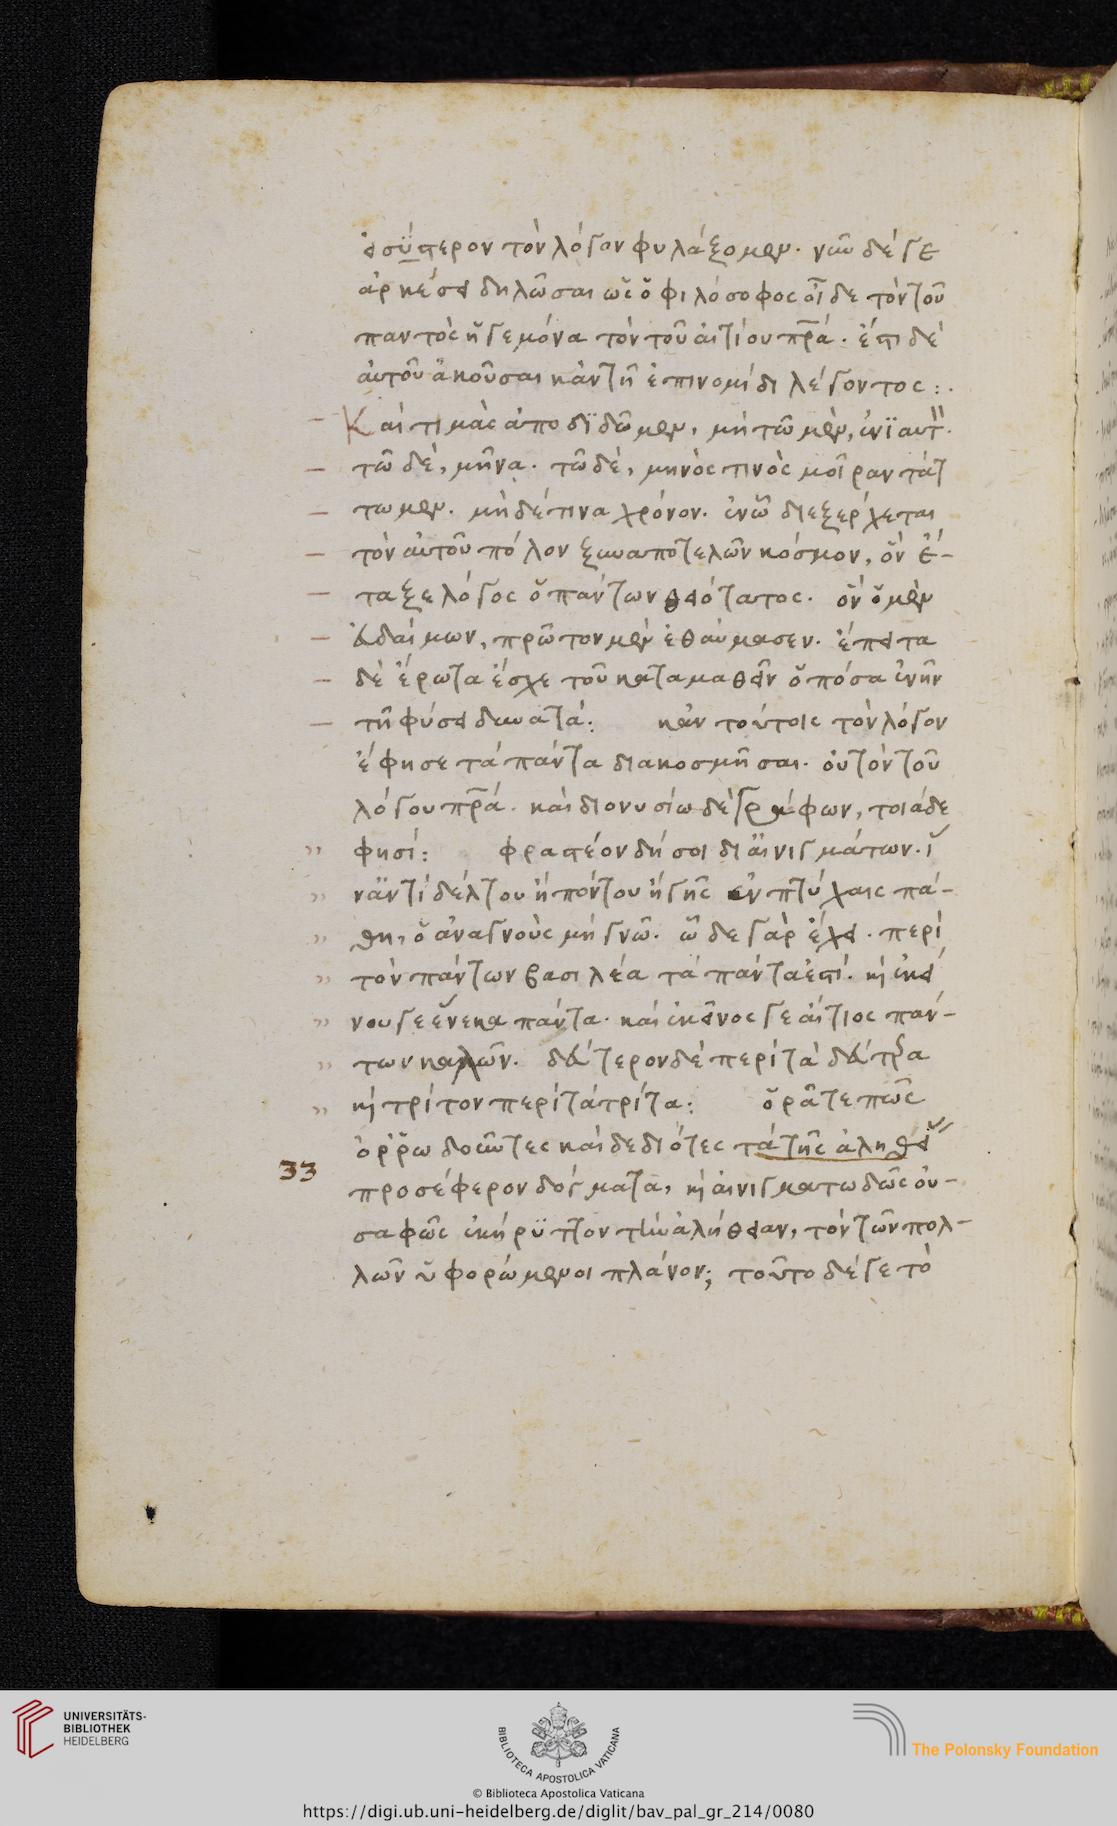 εἰσΰστερον τὸν λόγον φυλάξομεν. νῦν δέ γε
ἀρκέσει δηλῶσαι ὡς ὁ φιλόσοφος οἶδε τὸν τοῦ
παντὸς ἡγεμόνα τὸν τοῦ αἰτίου πρα. ἔστι δὲ
αὐτοῦ ἀκοῦσαι κἀν τῇ ἐπινομίδι λέγοντος :.
Και τιμὰς ἀποδϊδῶμεν, μὴ τῶ μὲν, ἐνϊαυτ
τῶ δὲ, μῆνα. τῶ δὲ, μηνὸς τινὸς μοῖραν τάτ
τωμεν. μηδέ τινα χρόνον. ἐν ᾧ διεξέρχεται
τὸν αὐτοῦ πόλον ξυναποτελῶν κόσμον, ὃν ἔ-
ταξε λόγος ὁ πάντων θειότατος. ὃν ὁ μὲν
εὐδαίμων, πρῶτον μὲν ἐθαύμασεν. ἔπειτα
δὲ ἔρωτα ἔσχε τοῦ καταμαθεῖν ὁπόσα ἐνῆν
τῇ φύσει δυνατά: κἀν τούτοις τὸν λόγον
ἔφησε τὰ πάντα διακοσμῆσαι. οὐ τὸν τοῦ
λόγου πρα. καὶ διονυσίω δὲ γράφων, τοιάδε
φησί: φραστέον δή σοι δι αἰνιγμάτων. ἵ
νἄν τί δέλτου ἢ πόντου ἢ γῆς ἐν πτύχαις πά-
θη, ὁ ἀναγνοὺς μὴ γνῶ. ὧδε γὰρ ἔχει. περὶ
τὸν πάντων βασιλέα τὰ πάντα ἐστί. κὶ ἐκεί
νου γε ἕνεκα πάντα. καὶ ἐκεῖνος γε αἴτιος πάν-
των καλῶν. δεύτερον δὲ περὶ τὰ δεύτρα
κὶ τρίτον περὶ τὰ τρίτα: ὁρᾶτε πῶς
ὀρρωδοῦντες καὶ δεδιότες τὰ τῆς ἀληθεί
33
προσέφερον δόγματα, κὶ αἰνιγματωδῶς οὐ-
σαφῶς ἐκήρυττον τὴν ἀλήθειαν, τὸν τῶν πολ-
λῶν ὑφορώμενοι πλάνον; τοῦτο δέ γε τὸ
UNIVERSITÄTS-
BIBLIOTHEK
HEIDELBERG
BIBLIOTECA APOSTOLICA VATICANA
The Polonsky Foundation
© Biblioteca Apostolica Vaticana
https://digi.ub.uni-heidelberg.de/diglit/bav_pal_gr_214/0080